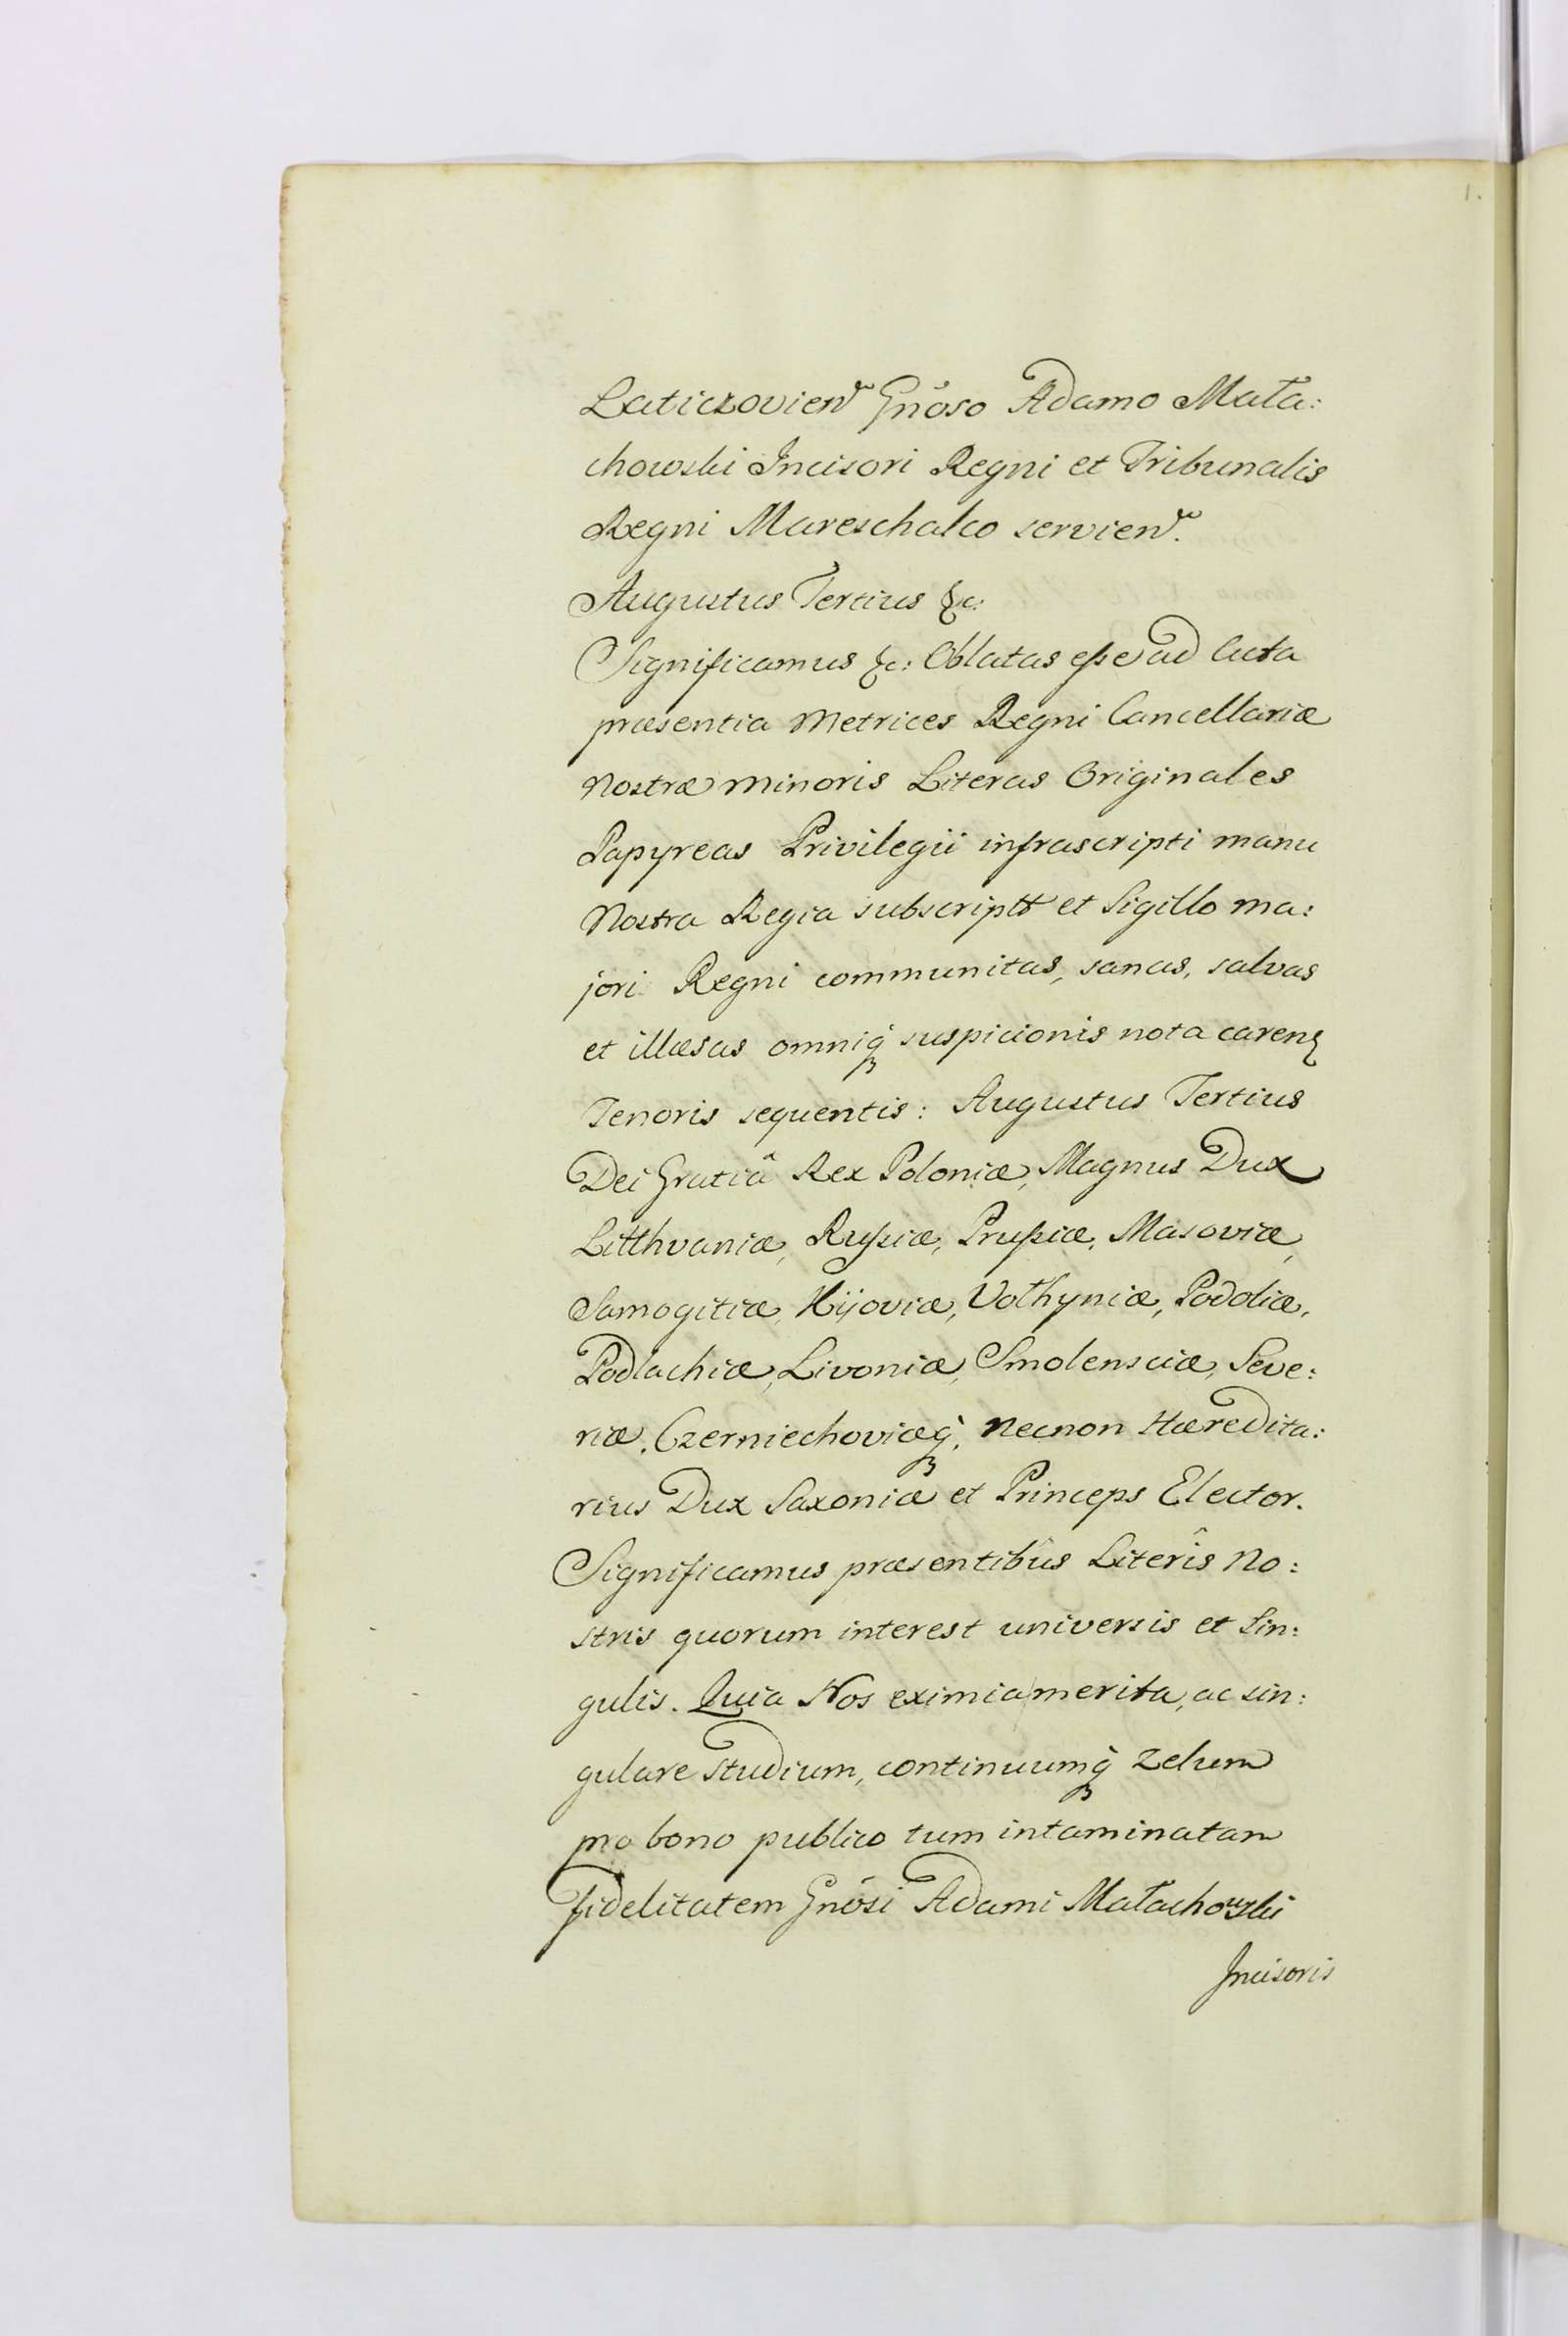 1.
Laticzovien. Gnoso Adamo Mała:
chowski Incisori Regni et Tribunalis
Regni Mareschalco servien.
Augustus Tertius &c:
Significamus &c: Oblatas eße ad Acta
præsentia Metrices Regni Cancellariæ
Nostræ minoris Literas Originales
Papyreas Privilegii infrascripti manu
Nostra Regia subscriptt et Sigillo ma:
jori Regni communitas, sanas, salvas
et illæsas omniq̀ʒ suspicionis nota careñ
Tenoris sequentis: Augustus Tertius
Dei Gratiâ Rex Poloniæ, Magnus Dux
Litthvaniæ, Rußiæ, Prußiæ, Masoviæ,
Samogitiæ, Kijoviæ, Volhyniæ, Podoliæ,
Podlachiæ, Livoniæ, Smolensciæ, Seve:
riæ, Czerniechoviæq̀ʒ, Necnon Hæredita:
rius Dux Saxoniæ et Princeps Elector.
Significamus præsentibûs Literîs No:
stris quorum interest universis et Sin:
gulis. Quia Nos eximia merita, ac sin:
gulare studium, continuumq̀ʒ zelum
pro bono publico tum intaminatam
fidelitatem Gnosi Adami Małachowski
Incisoris